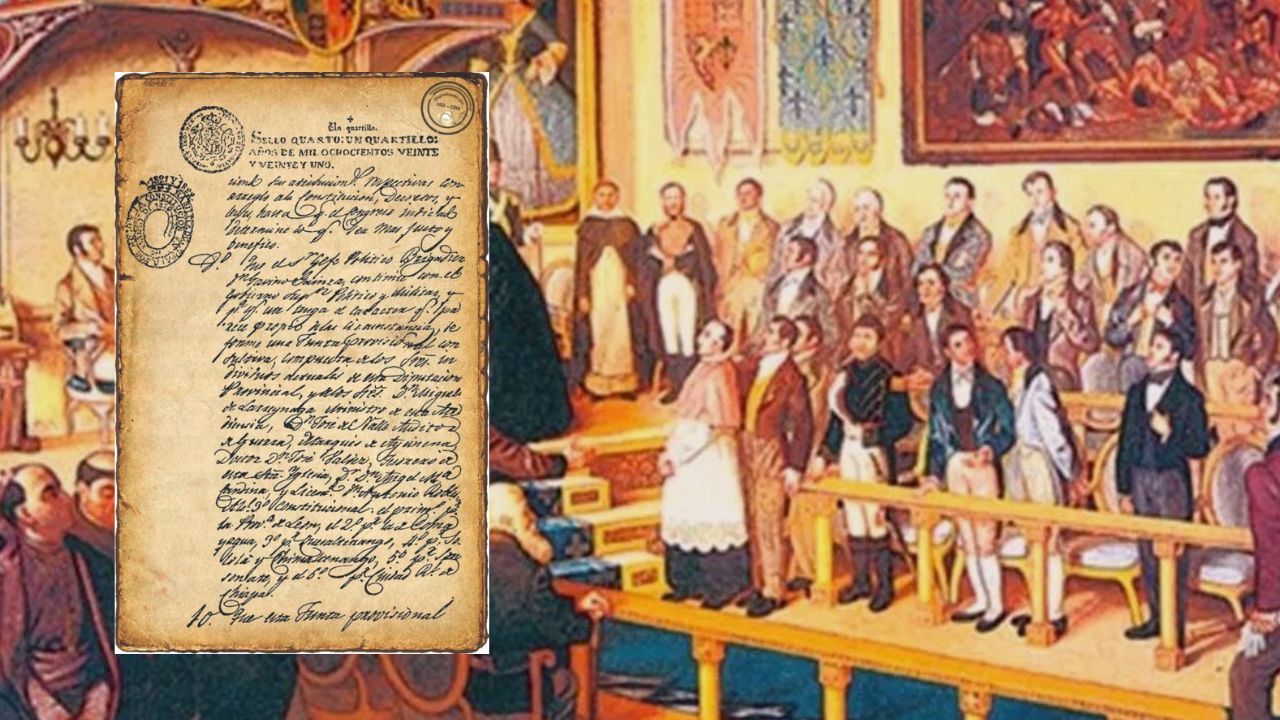 Un quartillo.
SELLO QUARTO: UN QUARTILLO:
AÑOS DE MIL OCHOCIENTOS VEINTE
Y VEINTE Y UNO.
con
arreglo a la Constitucion, Decretos, y
hasta q. el Congreso indicado
determine lo q. sea mas justo y
benefico.
9.º Que el Sr. Gefe Politico Brigadier
Gavino Gainza, continúe con el
Gobierno Politico y Militar, y
p.ª q. este tenga el caracter q.
propio de las circunstancias, se
forme una Junta provisional con
sultiva, compuesta de los Sres. in
dividuos actuales de esta Diputacion
Provincial, y de los Sres. D. Miguel
de Larreynaga Ministro de esta Au
diencia, D. José del Valle Auditor
de Guerra, Marques de Aycinena
Doctor D. José Valdez, Tesorero de
esta Sta. Yglesia, Dr. D. Angel M.ª
Candina, y Licenc. D. Antonio Robles
Alc. 3.º Constitucional: el prim.º p.r
la Prov.ª de Leon, el 2.º p.r la de Comay
agua, 3.º p.r Quesaltenango, 4.º p.r So
lolá y Chimaltenango, 5.º p.r Son
sonate, y el 6.º p.r Ciudad R.l de
Chiapa.
10. Que esta Junta provisional